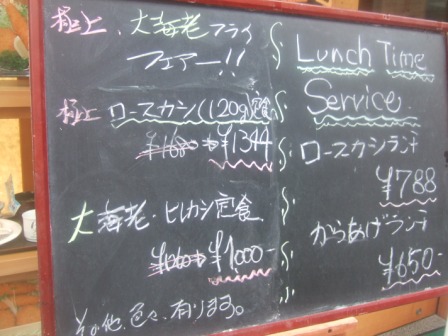 極上、大海老フライ
フェアー!!
極上 ロースカツ(120g)定食
¥1680→¥1344
大海老・ヒレカツ定食
¥1,000-
その他、色々、有ります。
Lunch Time
Service.
ロースカツランチ
¥788
からあげランチ
¥650-